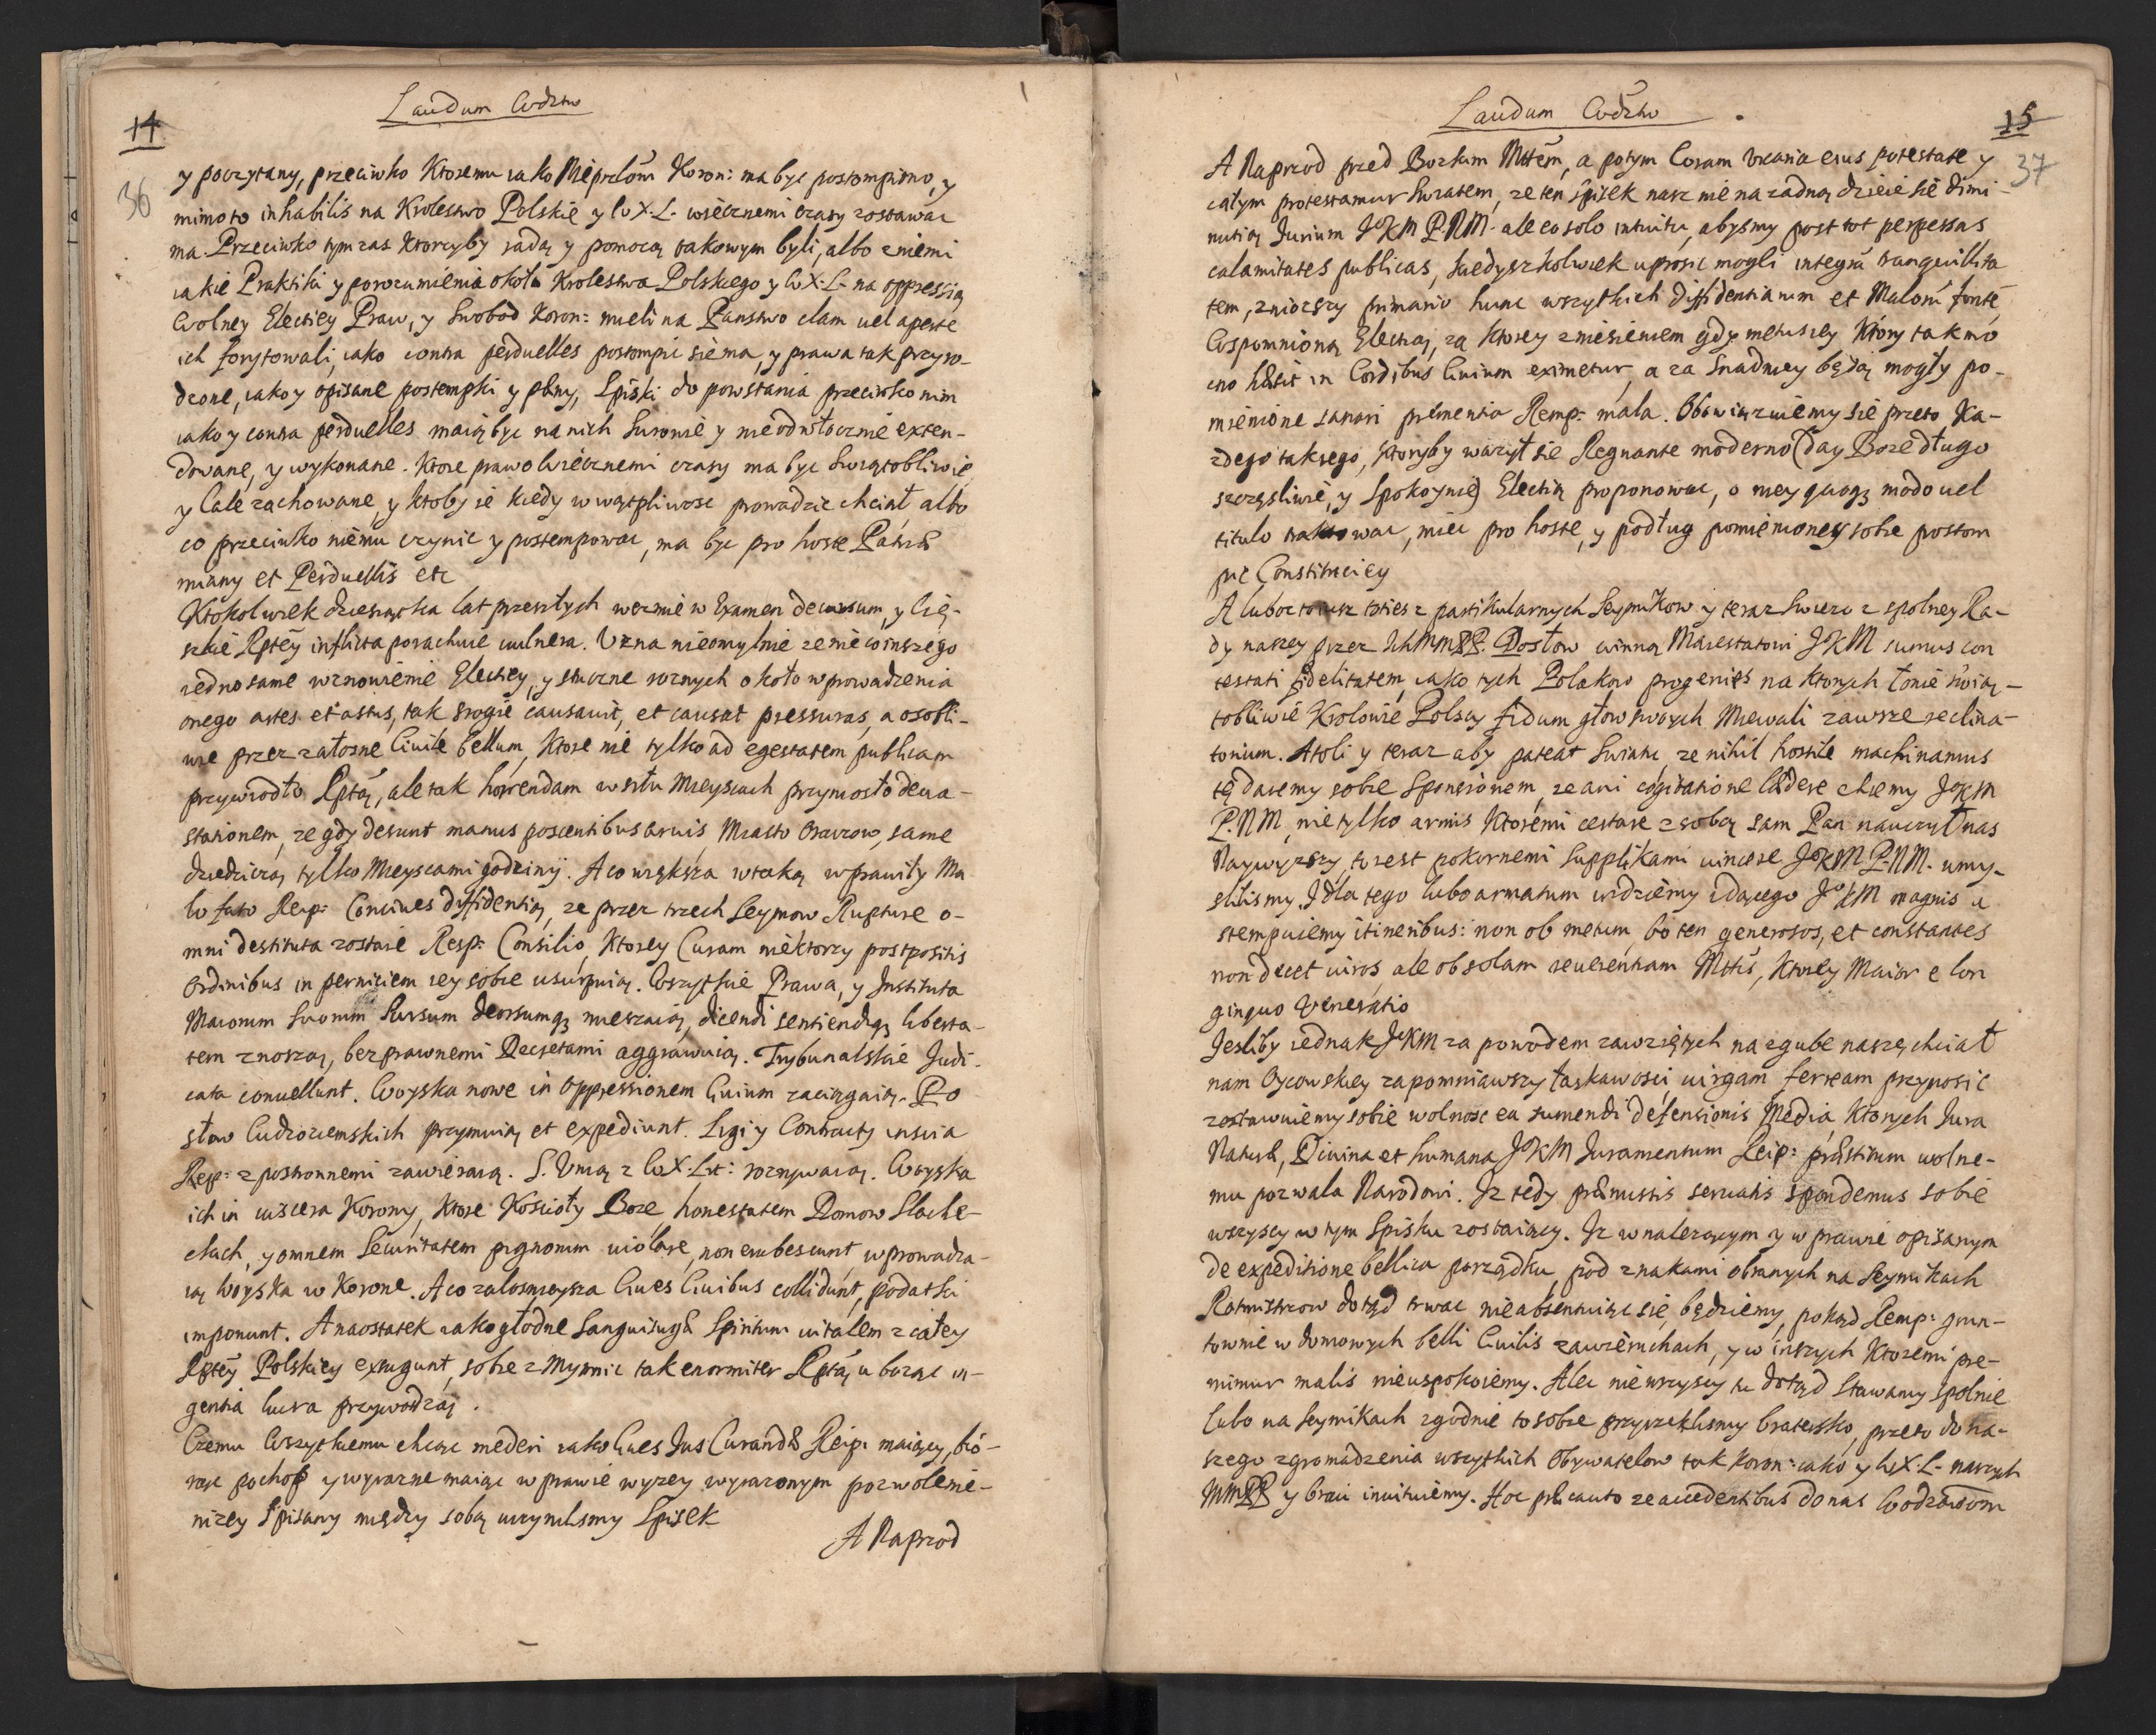 Laudum Wdztw
14
36
y poczytany, przeciwko Ktoremu iako Nieprlōm Koron: ma byc postompiono, y
mimo to inhabilis na Krolestwo Polskie y W.X.L. wiecznemi czasy zostawac
ma. Przeciwko tym zas Ktorzyby radą y pomocą takowym byli, albo z niemi
iakie Praktiki y porozumienia okolo Krolestwa Polskiego y W.X.L. na oppressią
Wolney Electiey Praw, y Swobod Koron: mieli na Panstwo clam uel aperte
ich forytowali, iako contra perduelles postompić się ma, y prawa tak przyro-
dzone, iako y opisane postempki y pēny, Spiski do powstania przeciwko nim
iako y contra perduelles maią byc na nich Surowie y nieodwłocznie exten-
dowane, y wykonane. Ktore prawo wiecznemi czasy ma byc Swiątobliwie
y Cale zachowane, y Ktoby ie kiedy w wątpliwosc prowadzic chciał albo
co przeciwko niemu czynic y postempowac, ma byc pro hoste Patriæ
miany et Perduellis etc
Ktokolwiek dziesiątka lat przeszłych wezmie w Examen decursum, y Cię-
szkie Rptēy inflicta porachuie uulnera. Uzna nieomylnie ze nie co inszego
iedno same wznowienie Electiey, y sztuczne roznych około wprowadzenia
onego artes et astus, tak srogie causauit, et causat pressuras, a osobli-
wie przez załosne Ciuile bellum, Ktore nie tylko ad egestatem publicam
przywiodło Rptą, ale tak horrendam w siłu Mieyscach przyniosło deua-
stationem, ze gdy desunt manus poscentibus aruis, Miasto Oraczow, same
dziedziczą tylko Mieyscami godziny. A co większa w taką wprawiły Ma
lo fato Reip: Conciues diffidentią, ze przez trzech Seymow Rupture o-
mni destituta zostaie Resp: Consilio, Ktorey Curam niektorzy postpositis
Ordinibus in perniciem iey sobie usurpuią. Wszytkie Prawa, y Instituta
Maiorum Suorum Sursum deorsumq3 mieszaią, dicendi sentiendiq3 liberta-
tem znoszą, bezprawnemi Decretami aggrawuią. Trybunalskie Judi-
cata conuellunt. Woyska nowe in Oppressionem Ciuium zaciągaią. Po
słow Cudzoziemskich przymuią et expediunt. Ligi y Contracty inscia
Rep: z postronnemi zawieraią. S. Unią z W.X.Lit: rozrywaią. Woyska
ich in uiscera Korony, Ktore Kościoły Boze, honestatem Domow Slache-
ckich, y omnem Securitatem pignorum uiolare, non erubescunt, wprowadza-
ią Woyska w Korone. A co zalosnieysza Ciues Ciuibus collidunt, podatki
imponunt. A naostatek iako głodne Sanguisugæ Spiritum uitalem z całey
Rptēy Polskiey exsugunt, sobie z Mynnic tak enormiter Rptą ubozac in-
gentia lucra przywodzą.
Czemu Wszytkiemu chcąc mederi iako Ciues Jus Curandæ Reip: maiący, bio-
rąc pochop y wyrazne maiąc w prawie wyzey wyrazonym pozwolenie-
nizey Spisany między sobą uczynilismy Spisek
A Naprzod
Laudum Wdztw
15
37
A Naprzod przed Bozkim Mttēm, a potym Coram Urania eius potestate y
całym protestamur Swiatem, ze ten Spisek nasz nie na zadną dzieie się dimi-
nutią Jurium JoKM P.NM. ale eo solo intuitu, abysmy post tot perpessas
calamitates publicas, kiedyszkolwiek uprosic mogli integrā tranquillita
tem, zniozszy primario hunc wszytkich diffidentiarum et Malorū fontē
Wspomnioną Electią, za Ktorey zniesieniem gdy metus iey Ktory tak mo
cno hæsit in Cordibus Ciuium eximetur, a za Snadniey będą mogły po-
mienione sanari prementia Remp: mala. Obowiązuiemy się przeto Ka-
zdego takiego, Ktoryby wazył się Regnante moderno (day Boze długo
szczęsliwie, y Spokoynie) Electią proponowac, o niey quoq3 modo uel
titulo traktowac, miec pro hoste, y podług pomienioney sobie postom
pic Constituciey
A luboc toties z partikularnych Seymikow y teraz Swiezo z spolney Ra-
dy naszey przez IchMMPP. Posłow winną Maiestatowi JKM sumus con
testati fidelitatem, iako tych Polakow progenies na Ktorych łonie świą-
tobliwie Krolowie Polscy fidum głow swoych Miewali zawsze reclina-
torium. Atoli y teraz aby pateat Swiatu ze nihil hostile machinamus
tę daiemy sobie Sponsionem, ze ani cogitatione lædere chcemy JoKM
P.NM, nie tylko armis Ktoremi certare z sobą sam Pan nauczył nas
Naywyzszy, to iest pokornemi Supplikami uincere JoKM P.NM. umy-
slilismy. I dla tego lubo armatum widziemy idącego JoKM magnis u
stempuiemy itineribus: non ob metum, bo ten generosos, et constantes
non decet uiros, ale ob solam reuerentiam Mttis, Ktorey Maior e lon
ginquo Veneratio
Jesliby iednak JoKM za powodem zawziętych na zgube naszę chciał
nam Oycowskiey zapomniawszy łaskawosci uirgam ferream przynosic
zostawuiemy sobie wolnosc ea sumendi defensionis Media, Ktorych Jura
Naturæ, Diuina et humana JoKM Juramentum Reip: præstitum wolne-
mu pozwala Narodowi. Iz tedy præmissis seruatis spondemus sobie
wszyscy w tym Spisku zostaiący. Iz w nalezącym y w prawie opisanym
de expeditione bellica porządku, pod znakami obranych na Seymikach
Rotmistrzow dotąd trwac nieabsentuiąc się będziemy, pokąd Remp: grun-
townie w domowych belli Ciuilis zawieruchach, y w inszych Ktoremi pre-
mimur malis nieuspokoiemy. Alec nie wszyscy tu dotąd Stawamy spolnie
lubo na Seymikach zgodnie to sobie przyrzeklismy bratersko, przeto do na-
szego zgromadzenia wszytkich Obywatelow tak Koron: iako y W.X.L. naszych
MMPP y braci inuituiemy. Hoc præcauto ze accedentibus do nas Wodztwom